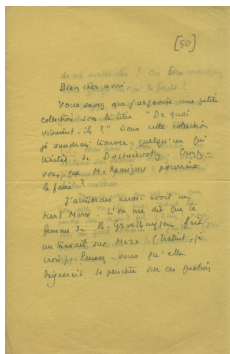 [50]
Bien cher ami
Vous savez que j'organise une petite
collection sous le titre "De quoi
vivaient-ils?" Dans cette collection
je voudrais trouver quelqu'un qui
traitât de Dostoïevsky. Croyez-
vous que M. pourrait
le faire?
J'aimerais aussi avoir un
Karl Marx. L'on me dit que la
femme de B. Groethuysen fait
un travail sur Marx (traduit, je
crois). Pensez-vous qu'elle
daignerait se pencher sur ces questions